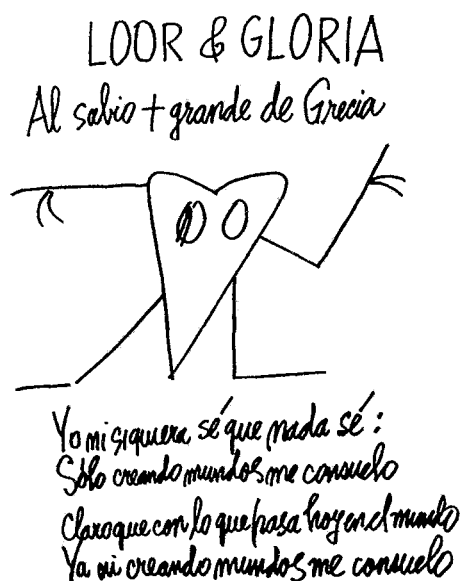 LOOR & GLORIA
Al sabio + grande de Grecia
Yo ni siquiera sé que nada sé:
Sólo creando mundos me consuelo
Claro que con lo que pasa hoy en el mundo
Ya ni creando mundos me consuelo